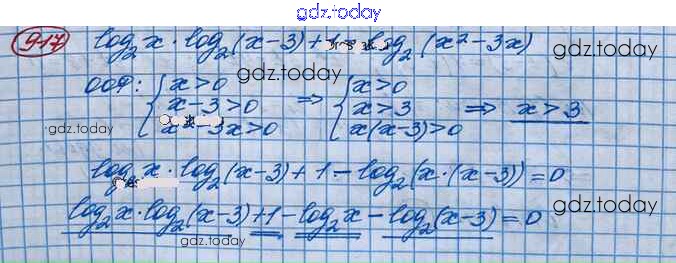 gdz.today
917 log₂x · log₂(x-3) + 1 = log₂(x²-3x) gdz.today
ООФ: { x>0 gdz.today { x>0
x-3>0 ⇒ x>3 ⇒ x>3
gdz.today x²-3x>0 x(x-3)>0
log₂x · log₂(x-3) + 1 - log₂(x·(x-3)) = 0
log₂x · log₂(x-3) + 1 - log₂x - log₂(x-3) = 0 gdz.today
gdz.today